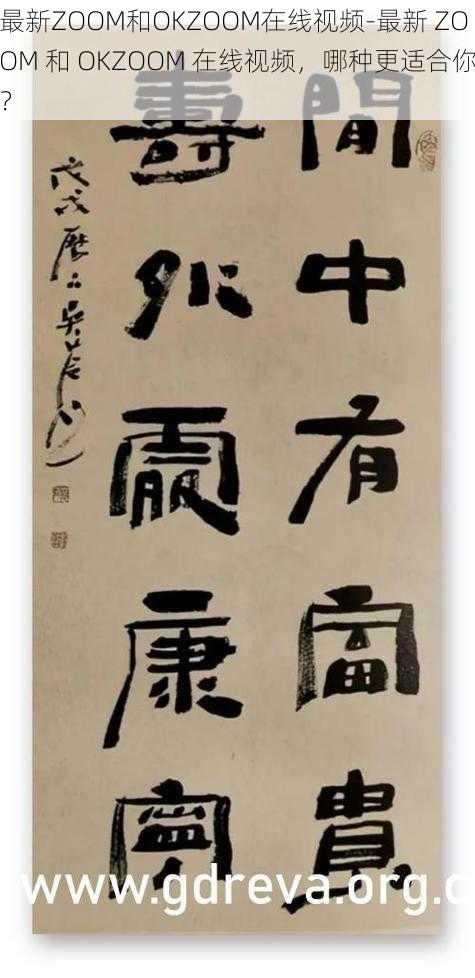 最新ZOOM和OKZOOM在线视频-最新 ZO
OM 和 OKZOOM 在线视频，哪种更适合你
？
閒中有富貴
壽外更康寧
戊戌歷下吳
www.gdreva.org.c